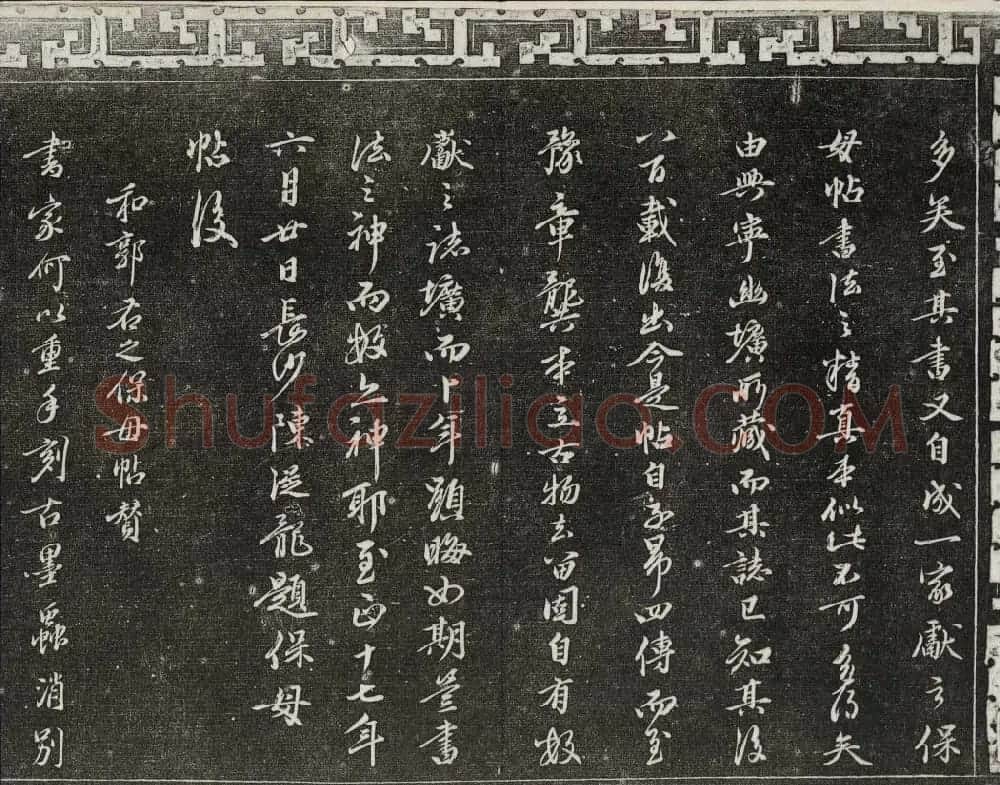 多矣至其書又自成一家獻之保
母帖書法之精真本似此不可多得矣
由興寧幽壙所藏而其誌已知其後
八百載後出今是帖自子昂四傳而至
豫章龔本立古物去留固自有數
獻之誌壙而卜年顯晦如期豈書
法之神而數亦神耶至正十七年
六月廿日長沙陳從龍題保母
帖後
和郭右之保母帖贊
書家何以重手刻古墨蟲消別
Shufaziliao.COM